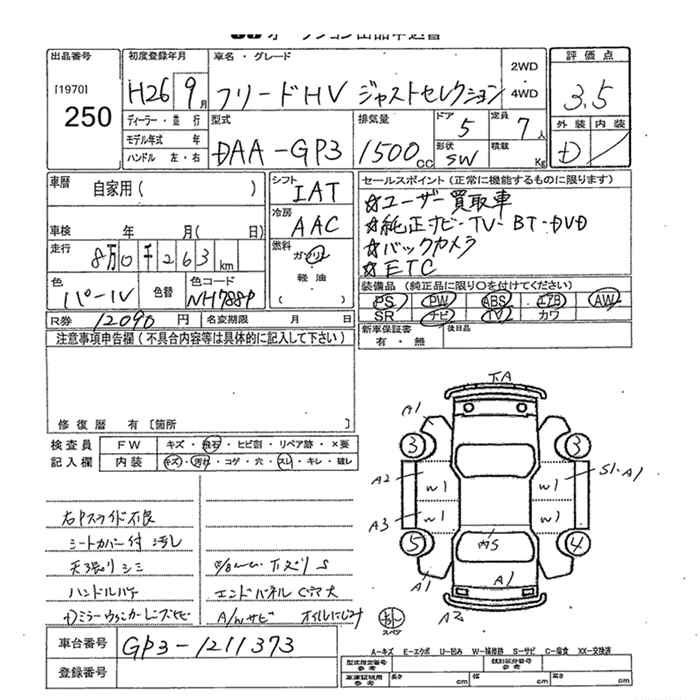 出品番号 初度登録年月 車名・グレード 評価点
[1970] H26 9月 フリードHV ジャストセレクション 2WD 4WD 3.5
250 ディーラー・並行 型式 排気量 ドア 5 定員 7人 外装 内装
モデル年式 年 DAA-GP3 1500cc 形状 SW 積載 Kg D
ハンドル 左・右
車歴 自家用( ) シフト IAT セールスポイント(正常に機能するものに限ります)
冷房 AAC ☆ユーザー買取車
車検 年 月( 日) ☆純正ナビ・TV・BT・DVD
走行 8万0千263km 燃料 ガソリン ☆バックカメラ
軽油 ☆ETC
( )
色 パール 色替 色コード NH788P 装備品(純正品に限り○を付けてください)
PS PW ABS エアB AW
R券 12090円 名変期限 月 日 SR ナビ TV カワ
注意事項申告欄(不具合内容等は具体的に記入して下さい) 新車保証書 有・無 後日品
修復歴 有〔箇所 〕
検査員 FW キズ・飛石・ヒビ割・リペア跡・×要
記入欄 内装 キズ・汚れ・コゲ・穴・スレ・キレ・破レ
F.A
A1
3 3
A2 W1 W1 S1・A1
A3 W1 W1
5 内S 4
A1 A1
A2
スペア
右Pスライド不良
シートカバー付 汚レ
天張リシミ
ハンドルハゲ エンドパネル
A/Wサビ オイルにじみ
車台番号 GP3-1211373
A-キズ E-エクボ U-凹み W-補修跡 S-サビ C-腐食 XX-交換済
登録番号 型式指定番号 参考 類別区分番号 参考
車庫証明用 参考 長さ cm 幅 cm 高さ cm